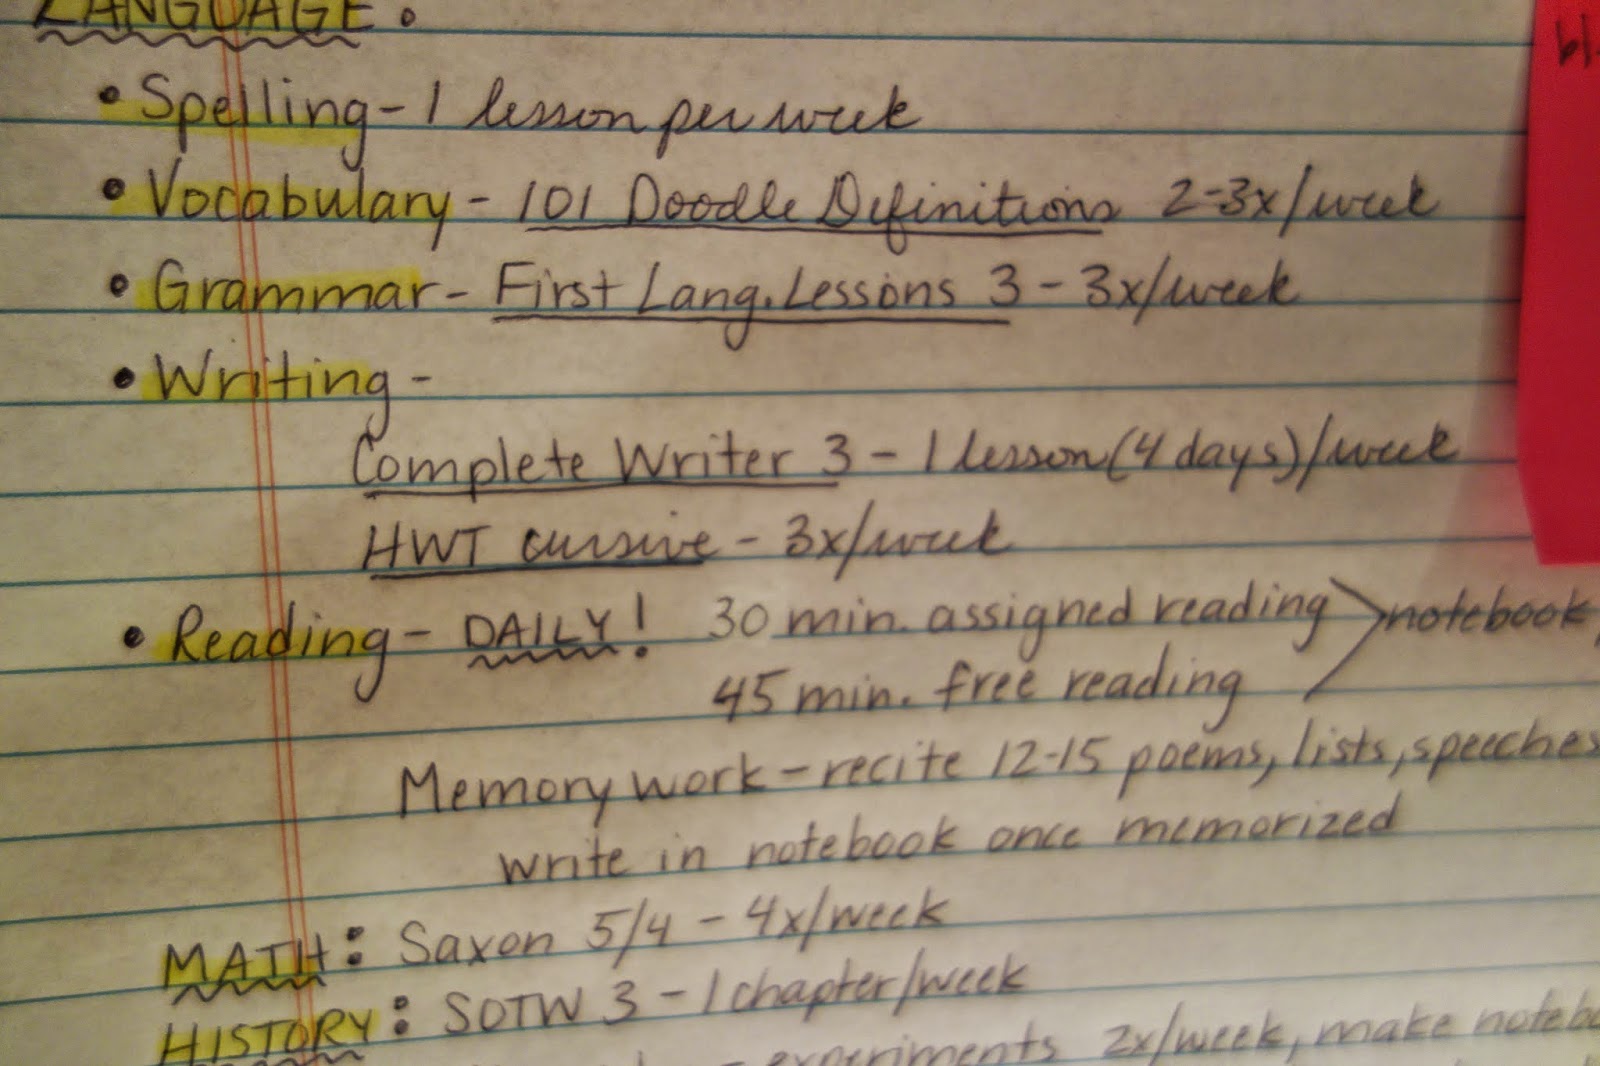 LANGUAGE:
• Spelling - 1 lesson per week
• Vocabulary - 101 Doodle Definitions 2-3x/week
• Grammar - First Lang. Lessons 3 - 3x/week
• Writing -
Complete Writer 3 - 1 lesson (4 days)/week
HWT cursive - 3x/week
• Reading - DAILY! 30 min. assigned reading > notebook,
45 min. free reading
Memory work - recite 12-15 poems, lists, speeches
write in notebook once memorized
MATH: Saxon 5/4 - 4x/week
HISTORY: SOTW 3 - 1 chapter/week
- experiments 2x/week, make notebo